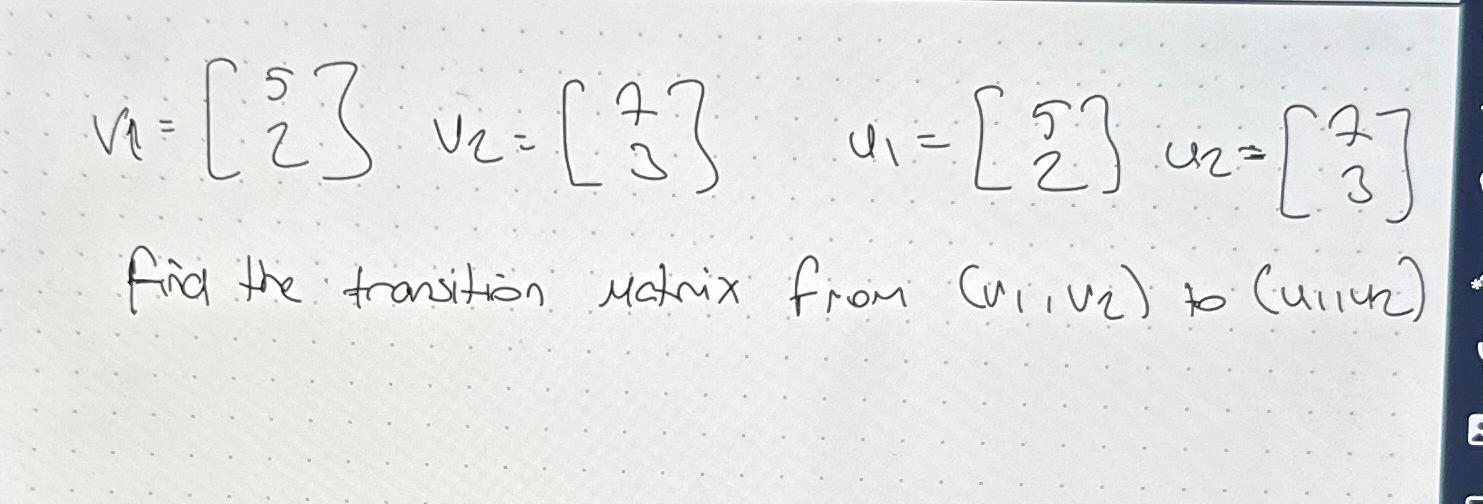 v1 = [5 2] v2 = [7 3] u1 = [5 2] u2 = [7 3]
find the transition matrix from (v1, v2) to (u1, u2)